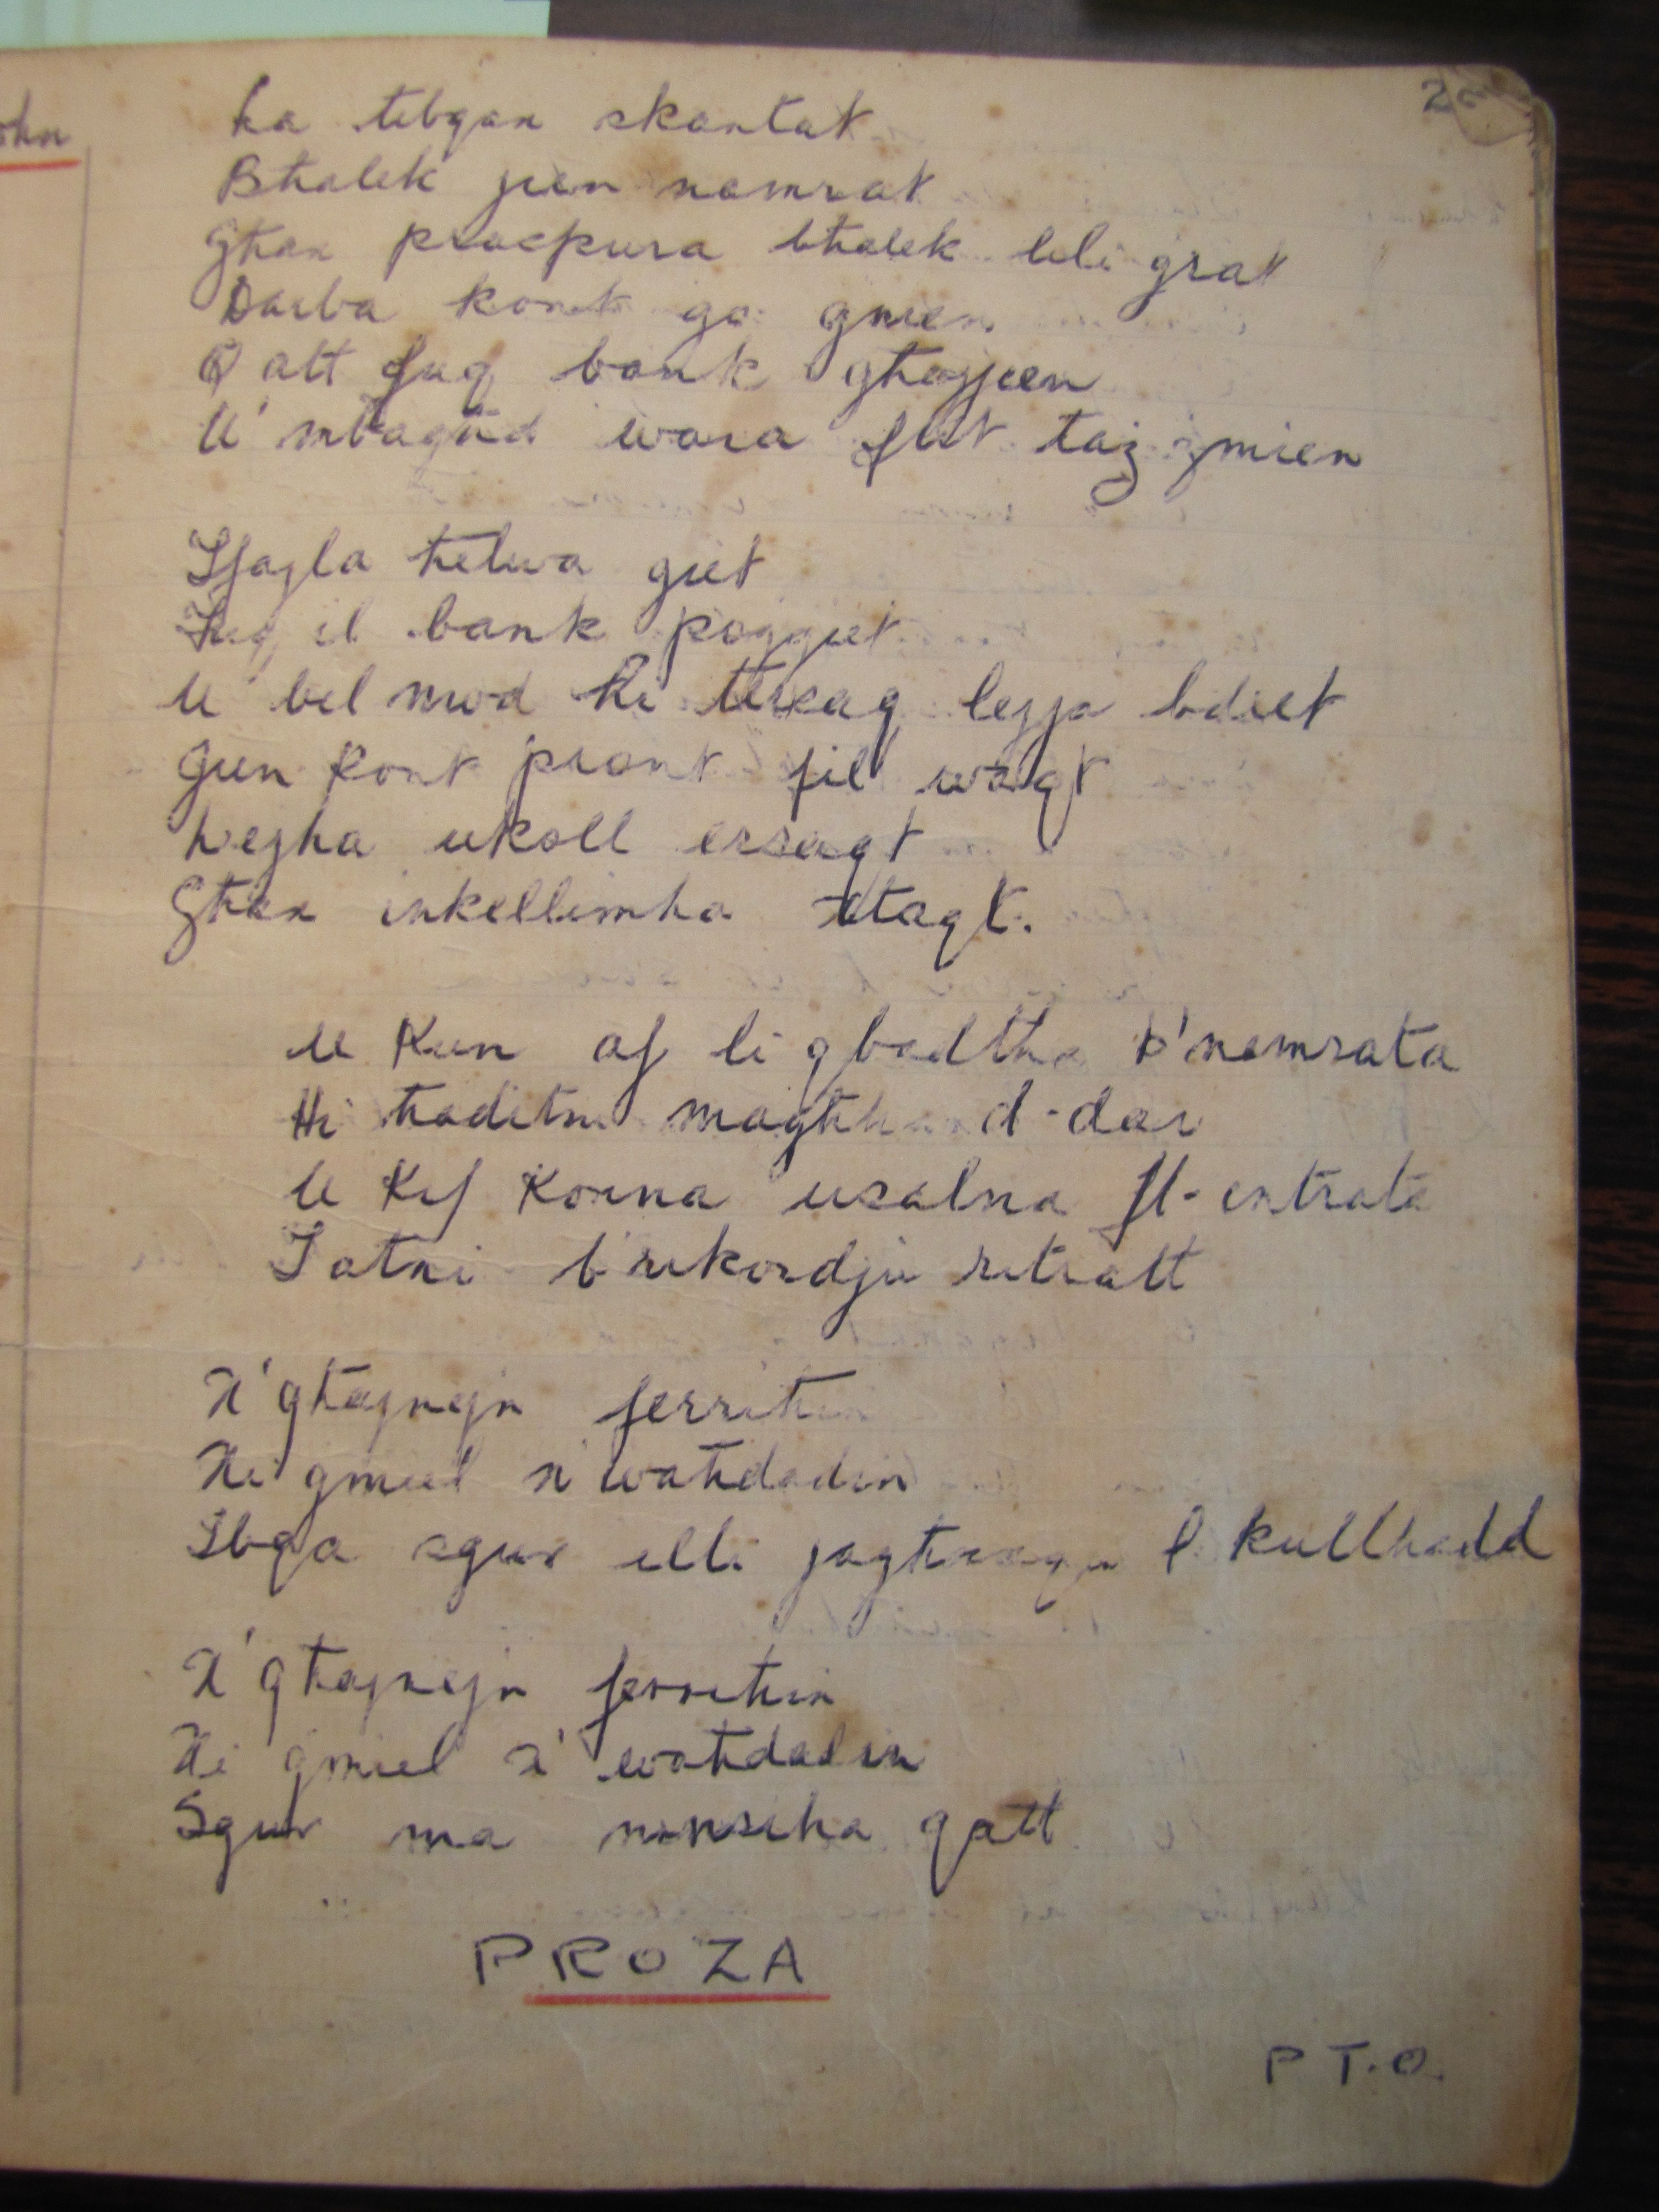 2
ohn
ha tibqax skantat
Bħalek jien namrat
Għax proċpura bħalek lili ġrat
Darba kont ġo ġnien
Qatt fuq bank għajjien
U mbagħd wara ftit taż żmien
Tfajla ħelwa ġiet
Fuq il bank poġġiet
U bil mod hi tersaq lejja bdiet
Jien kont pront fil waqt
Lejha ukoll ersaqt
Għax inkellimha xtaqt.
U Kun af li qbadtha b'namrata
Hi ħaditni magħha d-dar
U Kif Konna wsalna fl-entrata
Tatni b'rikordju ritratt
X'għajnejn ferriħin
Xi ġmiel x'waħdadin
Ibqa sgur illi jagħxxaqu l kullħadd
X'għajnejn ferriħin
Xi ġmiel x'waħdadin
Sgur ma ninsiha qatt
PROZA
P T.O.